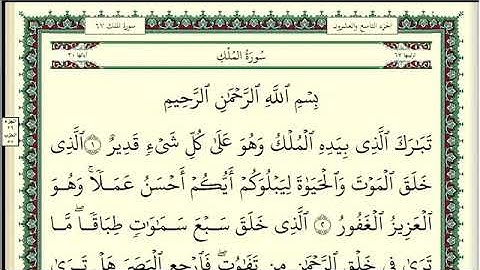 سورة الملك ٦٧
الجزء التاسع والعشرون
آياتها ٣٠
سُورَةُ المُلْكِ
ترتيبها ٦٧
بِسْمِ اللَّهِ الرَّحْمَٰنِ الرَّحِيمِ
تَبَارَكَ الَّذِي بِيَدِهِ الْمُلْكُ وَهُوَ عَلَىٰ كُلِّ شَيْءٍ قَدِيرٌ ١ الَّذِي
خَلَقَ الْمَوْتَ وَالْحَيَاةَ لِيَبْلُوَكُمْ أَيُّكُمْ أَحْسَنُ عَمَلًا ۚ وَهُوَ
الْعَزِيزُ الْغَفُورُ ٢ الَّذِي خَلَقَ سَبْعَ سَمَاوَاتٍ طِبَاقًا ۖ مَّا
تَرَىٰ فِي خَلْقِ الرَّحْمَٰنِ مِن تَفَاوُتٍ ۖ فَارْجِعِ الْبَصَرَ هَلْ تَرَىٰ